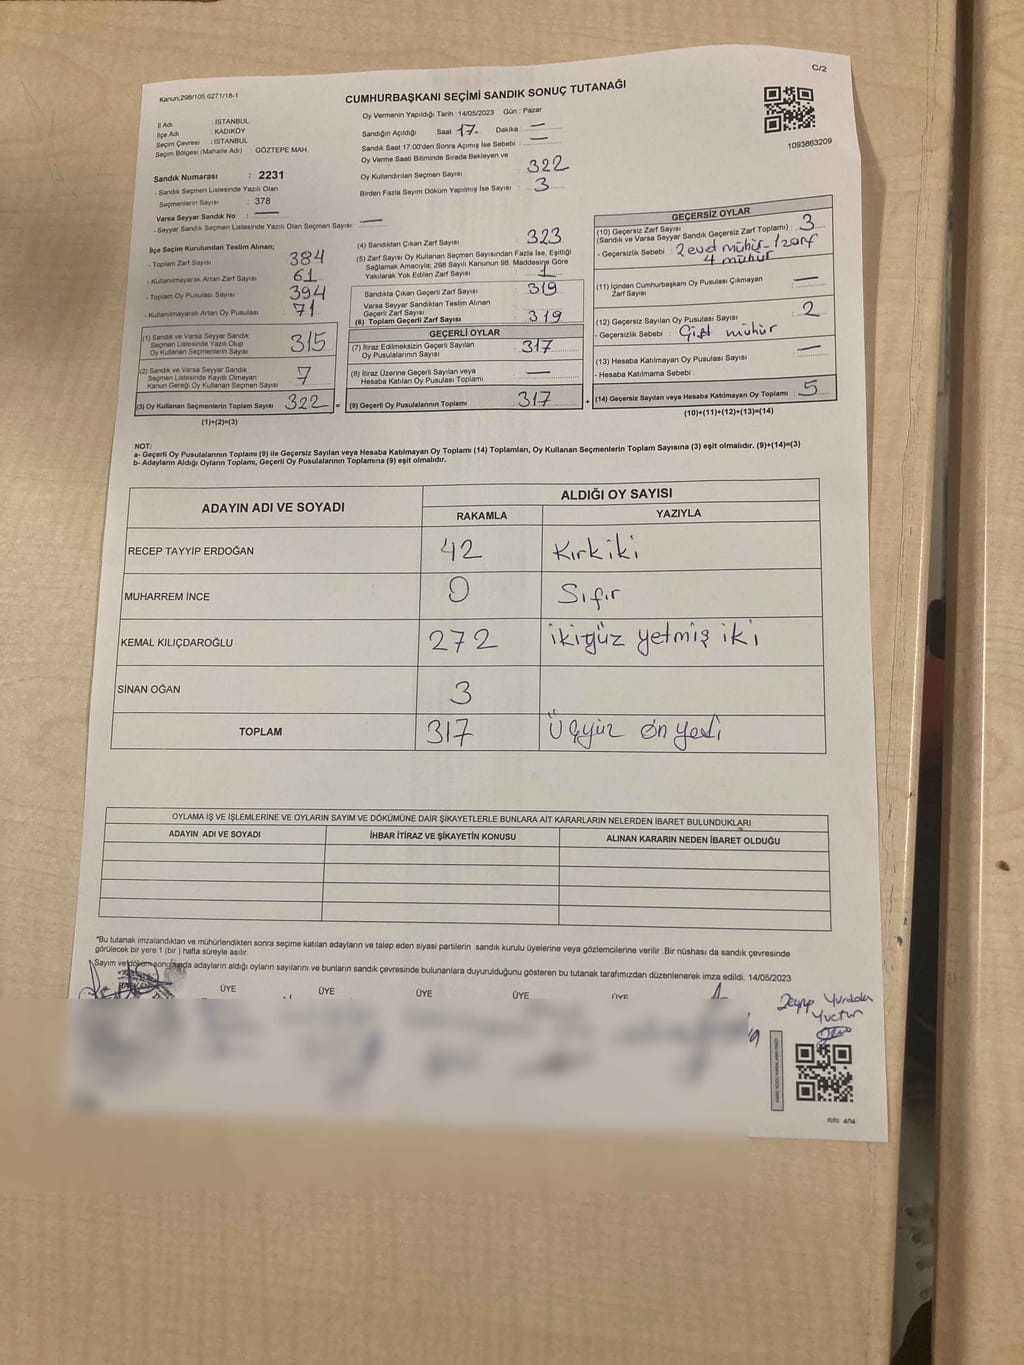 C/2
Kanun:298/105,6271/18-1
CUMHURBAŞKANI SEÇİMİ SANDIK SONUÇ TUTANAĞI
1093863209
İl Adı : İSTANBUL
İlçe Adı : KADIKÖY
Seçim Çevresi : İSTANBUL
Seçim Bölgesi (Mahalle Adı) : GÖZTEPE MAH.
Sandık Numarası : 2231
- Sandık Seçmen Listesinde Yazılı Olan
Seçmenlerin Sayısı : 378
Varsa Seyyar Sandık No : —
- Seyyar Sandık Seçmen Listesinde Yazılı Olan Seçmen Sayısı : —
Oy Vermenin Yapıldığı Tarih : 14/05/2023 Gün : Pazar
Sandığın Açıldığı Saat 17. Dakika : —
Sandık Saat 17:00'den Sonra Açımış İse Sebebi : —
Oy Verme Saati Bitiminde Sırada Bekleyen ve
Oy Kullandırılan Seçmen Sayısı : 322
Birden Fazla Sayım Döküm Yapılmış İse Sayısı : 3
İlçe Seçim Kurulundan Teslim Alınan;
- Toplam Zarf Sayısı : 384
- Kullanılmayarak Artan Zarf Sayısı : 61
- Toplam Oy Pusulası Sayısı : 394
- Kullanılmayarak Artan Oy Pusulası : 71
(1) Sandık ve Varsa Seyyar Sandık
Seçmen Listesinde Yazılı Olup
Oy Kullanan Seçmenlerin Sayısı : 315
(2) Sandık ve Varsa Seyyar Sandık
Seçmen Listesinde Kayıtlı Olmayan
Kanun Gereği Oy Kullanan Seçmen Sayısı : 7
(3) Oy Kullanan Seçmenlerin Toplam Sayısı : 322 =
(1)+(2)=(3)
(4) Sandıktan Çıkan Zarf Sayısı : 323
(5) Zarf Sayısı Oy Kullanan Seçmen Sayısından Fazla İse, Eşitliği
Sağlamak Amacıyla; 298 Sayılı Kanunun 98. Maddesine Göre
Yakılarak Yok Edilen Zarf Sayısı : 1
Sandıkta Çıkan Geçerli Zarf Sayısı : 319
Varsa Seyyar Sandıktan Teslim Alınan
Geçerli Zarf Sayısı :
(6) Toplam Geçerli Zarf Sayısı : 319
GEÇERLİ OYLAR
(7) İtiraz Edilmeksizin Geçerli Sayılan
Oy Pusulalarının Sayısı : 317
(8) İtiraz Üzerine Geçerli Sayılan veya
Hesaba Katılan Oy Pusulası Toplamı : —
(9) Geçerli Oy Pusulalarının Toplamı : 317 +
GEÇERSİZ OYLAR
(10) Geçersiz Zarf Sayısı
(Sandık ve Varsa Seyyar Sandık Geçersiz Zarf Toplamı) : 3
- Geçersizlik Sebebi : 2 evet mühür - 1 zarf
4 mühür
(11) İçinden Cumhurbaşkanı Oy Pusulası Çıkmayan
Zarf Sayısı : —
(12) Geçersiz Sayılan Oy Pusulası Sayısı : 2
- Geçersizlik Sebebi : Çift mühür
(13) Hesaba Katılmayan Oy Pusulası Sayısı : —
- Hesaba Katılmama Sebebi :
(14) Geçersiz Sayılan veya Hesaba Katılmayan Oy Toplamı : 5
(10)+(11)+(12)+(13)=(14)
NOT:
a- Geçerli Oy Pusulalarının Toplamı (9) ile Geçersiz Sayılan veya Hesaba Katılmayan Oy Toplamı (14) Toplamları, Oy Kullanan Seçmenlerin Toplam Sayısına (3) eşit olmalıdır. (9)+(14)=(3)
b- Adayların Aldığı Oyların Toplamı, Geçerli Oy Pusulalarının Toplamına (9) eşit olmalıdır.
ADAYIN ADI VE SOYADI ALDIĞI OY SAYISI
RAKAMLA YAZIYLA
RECEP TAYYİP ERDOĞAN 42 Kırkiki
MUHARREM İNCE 0 Sıfır
KEMAL KILIÇDAROĞLU 272 ikiyüz yetmiş iki
SİNAN OĞAN 3
TOPLAM 317 Üçyüz on yedi
OYLAMA İŞ VE İŞLEMLERİNE VE OYLARIN SAYIM VE DÖKÜMÜNE DAİR ŞİKAYETLERLE BUNLARA AİT KARARLARIN NELERDEN İBARET BULUNDUKLARI
ADAYIN ADI VE SOYADI İHBAR İTİRAZ VE ŞİKAYETİN KONUSU ALINAN KARARIN NEDEN İBARET OLDUĞU
*Bu tutanak imzalandıktan ve mühürlendikten sonra seçime katılan adayların ve talep eden siyasi partilerin sandık kurulu üyelerine veya gözlemcilerine verilir .Bir nüshası da sandık çevresinde
görülecek bir yere 1 (bir ) hafta süreyle asılır.
Sayım ve döküm sonucunda adayların aldığı oyların sayılarını ve bunların sandık çevresinde bulunanlara duyurulduğunu gösteren bu tutanak tarafımızdan düzenlenerek imza edildi. 14/05/2023
ÜYE ÜYE ÜYE ÜYE ÜYE